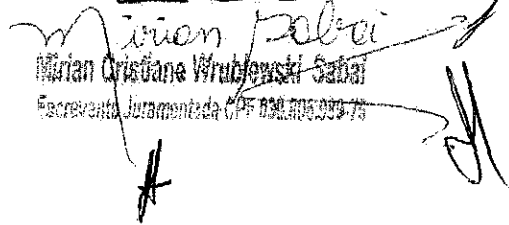 Mirian Sabai
Mirian Cristiane Wrublewski Sabai
Escrevente Juramentada CPF